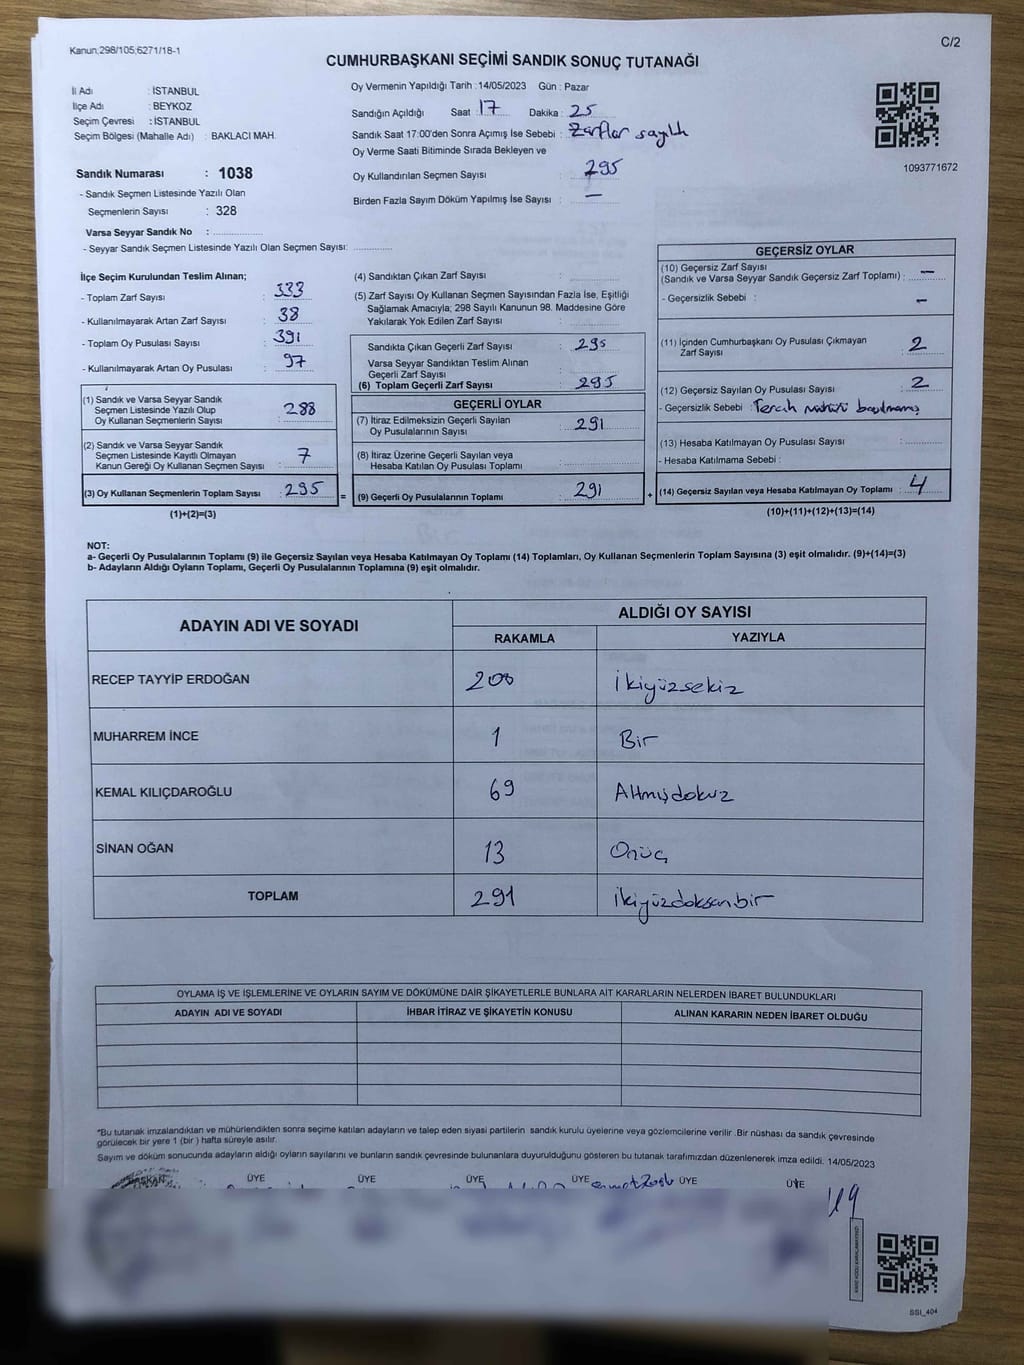 Kanun;298/105;6271/18-1
C/2
CUMHURBAŞKANI SEÇİMİ SANDIK SONUÇ TUTANAĞI
İl Adı : İSTANBUL
İlçe Adı : BEYKOZ
Seçim Çevresi : İSTANBUL
Seçim Bölgesi (Mahalle Adı) : BAKLACI MAH.
Sandık Numarası : 1038
- Sandık Seçmen Listesinde Yazılı Olan
Seçmenlerin Sayısı : 328
Varsa Seyyar Sandık No :
- Seyyar Sandık Seçmen Listesinde Yazılı Olan Seçmen Sayısı:
Oy Vermenin Yapıldığı Tarih : 14/05/2023 Gün : Pazar
Sandığın Açıldığı Saat 17 Dakika : 25
Sandık Saat 17:00'den Sonra Açımış İse Sebebi : Zarflar sayıldı
Oy Verme Saati Bitiminde Sırada Bekleyen ve
Oy Kullandırılan Seçmen Sayısı : 295
Birden Fazla Sayım Döküm Yapılmış İse Sayısı : —
1093771672
İlçe Seçim Kurulundan Teslim Alınan;
- Toplam Zarf Sayısı : 333
- Kullanılmayarak Artan Zarf Sayısı : 38
- Toplam Oy Pusulası Sayısı : 391
- Kullanılmayarak Artan Oy Pusulası : 97
(1) Sandık ve Varsa Seyyar Sandık
Seçmen Listesinde Yazılı Olup
Oy Kullanan Seçmenlerin Sayısı : 288
(2) Sandık ve Varsa Seyyar Sandık
Seçmen Listesinde Kayıtlı Olmayan
Kanun Gereği Oy Kullanan Seçmen Sayısı : 7
(3) Oy Kullanan Seçmenlerin Toplam Sayısı : 295
(1)+(2)=(3)
(4) Sandıktan Çıkan Zarf Sayısı :
(5) Zarf Sayısı Oy Kullanan Seçmen Sayısından Fazla İse, Eşitliği
Sağlamak Amacıyla; 298 Sayılı Kanunun 98. Maddesine Göre
Yakılarak Yok Edilen Zarf Sayısı :
Sandıkta Çıkan Geçerli Zarf Sayısı : 295
Varsa Seyyar Sandıktan Teslim Alınan
Geçerli Zarf Sayısı :
(6) Toplam Geçerli Zarf Sayısı : 295
GEÇERLİ OYLAR
(7) İtiraz Edilmeksizin Geçerli Sayılan
Oy Pusulalarının Sayısı : 291
(8) İtiraz Üzerine Geçerli Sayılan veya
Hesaba Katılan Oy Pusulası Toplamı :
= (9) Geçerli Oy Pusulalarının Toplamı : 291
GEÇERSİZ OYLAR
(10) Geçersiz Zarf Sayısı
(Sandık ve Varsa Seyyar Sandık Geçersiz Zarf Toplamı) : —
- Geçersizlik Sebebi : —
(11) İçinden Cumhurbaşkanı Oy Pusulası Çıkmayan
Zarf Sayısı : 2
(12) Geçersiz Sayılan Oy Pusulası Sayısı : 2
- Geçersizlik Sebebi : Tercih mührü basılmamış
(13) Hesaba Katılmayan Oy Pusulası Sayısı :
- Hesaba Katılmama Sebebi :
+ (14) Geçersiz Sayılan veya Hesaba Katılmayan Oy Toplamı : 4
(10)+(11)+(12)+(13)=(14)
NOT:
a- Geçerli Oy Pusulalarının Toplamı (9) ile Geçersiz Sayılan veya Hesaba Katılmayan Oy Toplamı (14) Toplamları, Oy Kullanan Seçmenlerin Toplam Sayısına (3) eşit olmalıdır. (9)+(14)=(3)
b- Adayların Aldığı Oyların Toplamı, Geçerli Oy Pusulalarının Toplamına (9) eşit olmalıdır.
ADAYIN ADI VE SOYADI ALDIĞI OY SAYISI
RAKAMLA YAZIYLA
RECEP TAYYİP ERDOĞAN 208 İkiyüzsekiz
MUHARREM İNCE 1 Bir
KEMAL KILIÇDAROĞLU 69 Altmışdokuz
SİNAN OĞAN 13 Onüç
TOPLAM 291 İkiyüzdoksanbir
OYLAMA İŞ VE İŞLEMLERİNE VE OYLARIN SAYIM VE DÖKÜMÜNE DAİR ŞİKAYETLERLE BUNLARA AİT KARARLARIN NELERDEN İBARET BULUNDUKLARI
ADAYIN ADI VE SOYADI İHBAR İTİRAZ VE ŞİKAYETİN KONUSU ALINAN KARARIN NEDEN İBARET OLDUĞU
*Bu tutanak imzalandıktan ve mühürlendikten sonra seçime katılan adayların ve talep eden siyasi partilerin sandık kurulu üyelerine veya gözlemcilerine verilir .Bir nüshası da sandık çevresinde
görülecek bir yere 1 (bir ) hafta süreyle asılır.
Sayım ve döküm sonucunda adayların aldığı oyların sayılarını ve bunların sandık çevresinde bulunanlara duyurulduğunu gösteren bu tutanak tarafımızdan düzenlenerek imza edildi. 14/05/2023
BAŞKAN ÜYE ÜYE ÜYE ÜYE ÜYE ÜYE
SSI_404